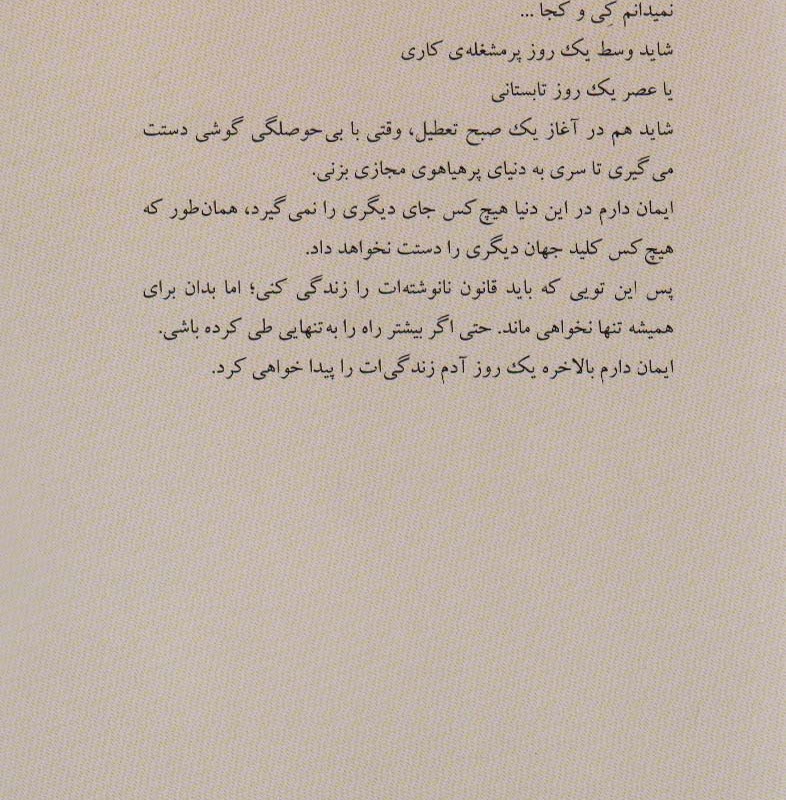 نمیدانم کِی و کجا ...
شاید وسط یک روز پرمشغله‌ی کاری
یا عصر یک روز تابستانی
شاید هم در آغاز یک صبح تعطیل، وقتی با بی‌حوصلگی گوشی دستت
می‌گیری تا سری به دنیای پرهیاهوی مجازی بزنی.
ایمان دارم در این دنیا هیچ‌کس جای دیگری را نمی‌گیرد، همان‌طور که
هیچ‌کس کلید جهان دیگری را دستت نخواهد داد.
پس این تویی که باید قانون نانوشته‌ات را زندگی کنی؛ اما بدان برای
همیشه تنها نخواهی ماند. حتی اگر بیشتر راه را به‌تنهایی طی کرده باشی.
ایمان دارم بالاخره یک روز آدم زندگی‌ات را پیدا خواهی کرد.